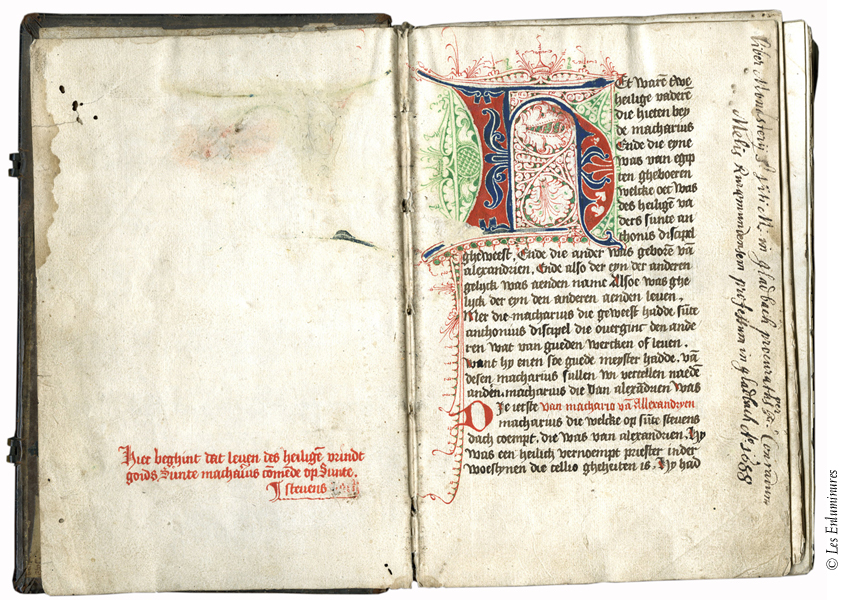 Hier beghint dat leuen des heiligē vrindt
goids Sunte machaius cōmēde op Sunte.
Steuens dach
Et warē twe
heilige vaderē
die hieten bey
de macharius
Ende die eyne
was van egip
ten gheboeren
welcke oec was
des heilige va
ders sunte an
thonis discipel
gheweest, Ende die ander was geborē vā
alexandrien, Ende also der eyn der anderen
gelijck was aenden name Alsoe was ghe
lijck der eyn den anderen aenden leuen,
Mer die macharius die geweest hadde sūte
anthonius discipel die ouerginc den ande
ren wat van gueden wercken of leuen.
Want hy enen soe guede meyster hadde. vā
desen macharius sullen wi vertellen naedē
anden macharius die van alexādrien was
Die ierste van machario vā Alexandryen
macharius die welcke op sūte steuens
dach coempt. die was van alexandrien. Hy
was een heilich vernoempt priester in der
woestynen die cellie gheheiten is. Hy had
Liber Monasterij S. Viti M. in gladbach procuratus per Conradum
Melis Ruremundensem professum in gladbach Aº 1688
© Les Enluminures